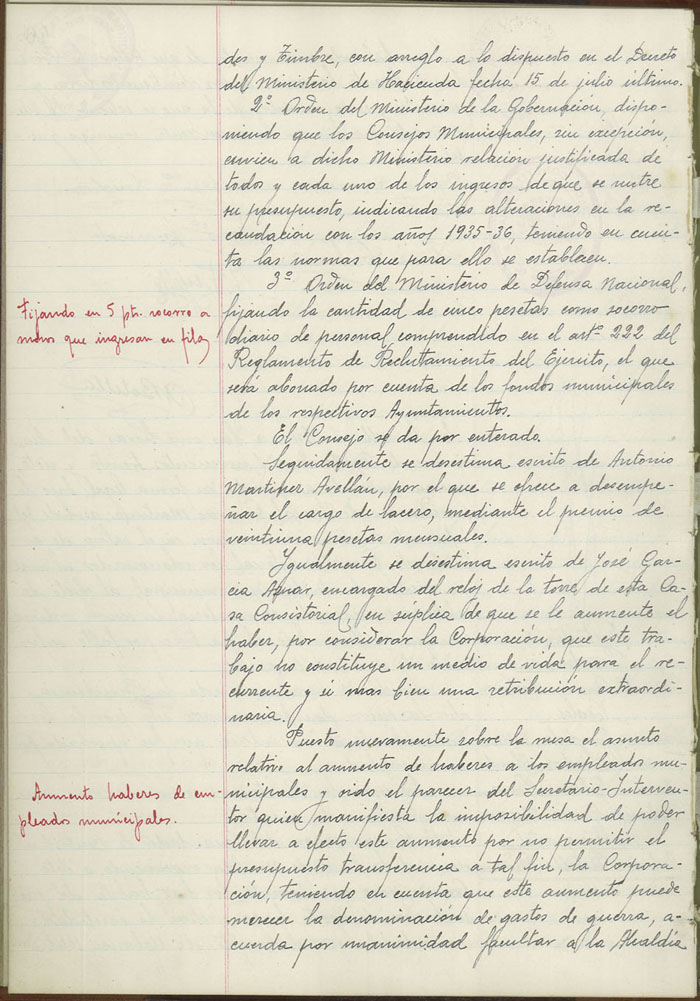 des y Timbre, con arreglo a lo dispuesto en el Decreto
del Ministerio de Hacienda fecha 15 de julio último.
2º Orden del Ministerio de la Gobernacion, dispo-
niendo que los Consejos Municipales, sin excepción,
envien a dicho Ministerio relacion justificada de
todos y cada uno de los ingresos de que se nutre
su presupuesto, indicando las alteraciones en la re-
caudación con los años 1935-36, teniendo en cuen-
ta las normas que para ello se establecen.
3º Orden del Ministerio de Defensa Nacional,
Fijando en 5 pts. socorro a
mozos que ingresan en filas
fijando la cantidad de cinco pesetas como socorro
diario de personal comprendido en el artº 222 del
Reglamento de Reclutamiento del Ejercito, el que
será abonado por cuenta de los fondos municipales
de los respectivos Ayuntamientos.
El Consejo se da por enterado.
Seguidamente se desestima escrito de Antonio
Martinez Avellán, por el que se ofrece a desempe-
ñar el cargo de lacero, mediante el premio de
veintiuna pesetas mensuales.
Igualmente se desestima escrito de José Gar-
cia Aznar, encargado del reloj de la torre de esta Ca-
sa Consistorial, en súplica de que se le aumente el
haber, por considerar la Corporación, que este tra-
bajo no constituye un medio de vida para el re-
currente y si mas bien una retribución extraordi-
naria.
Puesto nuevamente sobre la mesa el asunto
relativo al aumento de haberes a los empleados mu-
Aumento haberes de em-
pleados municipales.
nicipales y oido el parecer del Secretario-Interven-
tor quien manifiesta la imposibilidad de poder
llevar a efecto este aumento por no permitir el
presupuesto transferencia a tal fin, la Corpora-
ción, teniendo en cuenta que este aumento puede
merecer la denominación de gastos de guerra, a-
cuerda por unanimidad facultar a la Alcaldía